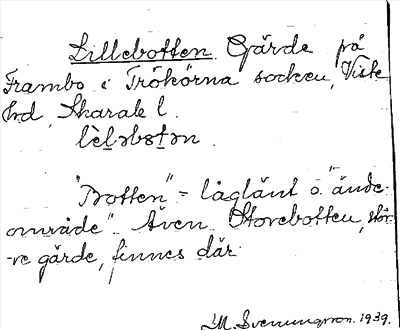 Lillebotten. Gärde på
Frambo i Trökörna socken, Viste
hd, Skarab. l.
lèḷəbɔt̠ən.
"Botten" = låglänt o. "ände-
område". Även Storebotten, stör-
-re gärde, finnes där.
M. Svenungsson. 1939.